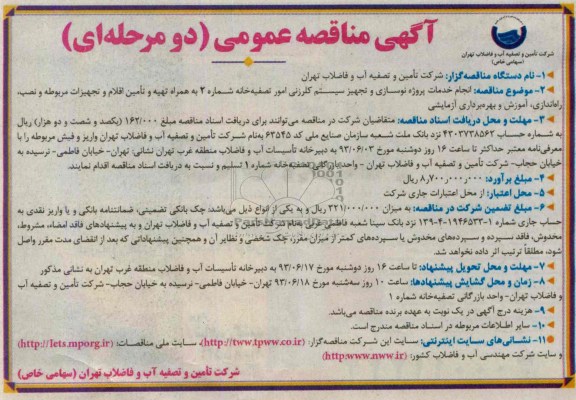 آگهی مناقصه عمومی (دو مرحله‌ای)
شرکت تأمین و تصفیه آب و فاضلاب تهران
(سهامی خاص)
۱- نام دستگاه مناقصه‌گزار: شرکت تأمین و تصفیه آب و فاضلاب تهران
۲- موضوع مناقصه: انجام خدمات پروژه نوسازی و تجهیز سیستم کلرزنی امور تصفیه‌خانه شماره ۲ به همراه تهیه و تأمین اقلام و تجهیزات مربوطه و نصب،
راه‌اندازی، آموزش و بهره‌برداری آزمایشی
۳- مهلت و محل دریافت اسناد مناقصه: متقاضیان شرکت در مناقصه می‌توانند برای دریافت اسناد مناقصه مبلغ ۱۶۲/۰۰۰ (یکصد و شصت و دو هزار) ریال
به شماره حساب ۴۳۰۳۷۳۸۵۶۲ نزد بانک ملت شعبه سازمان صنایع ملی کد ۶۳۵۴۵ به‌نام شرکت تأمین و تصفیه آب و فاضلاب تهران واریز و فیش مربوطه را با
معرفی‌نامه معتبر حداکثر تا ساعت ۱۶ روز دوشنبه مورخ ۹۳/۰۶/۰۳ به دبیرخانه تأسیسات آب و فاضلاب منطقه غرب تهران نشانی: تهران- خیابان فاطمی- نرسیده به
خیابان حجاب- شرکت تأمین و تصفیه آب و فاضلاب تهران - واحد بازرگانی تصفیه‌خانه شماره ۱ تسلیم و نسبت به دریافت اسناد مناقصه اقدام نمایند.
۴- مبلغ برآورد: ۸٫۷۰۰٫۰۰۰٫۰۰۰ ریال
۵- محل اعتبار: از محل اعتبارات جاری شرکت
۶- مبلغ تضمین شرکت در مناقصه: به میزان ۳۲۱/۰۰۰/۰۰۰ ریال و به یکی از انواع ذیل می‌باشد: چک بانکی تضمینی، ضمانتنامه بانکی و یا واریز نقدی به
حساب جاری شماره ۱۳۹-۴-۱۹۴۶۵۳۳-۱ نزد بانک سینا شعبه فاطمی غربی به‌نام شرکت تأمین و تصفیه آب و فاضلاب تهران و به پیشنهادهای فاقد امضاء، مشروط،
مخدوش، فاقد سپرده و سپرده‌های مخدوش یا سپرده‌های کمتر از میزان مقرر، چک شخصی و نظایر آن و همچنین پیشنهاداتی که بعد از انقضای مدت مقرر واصل
شود، مطلقاً ترتیب اثر داده نخواهد شد.
۷- مهلت و محل تحویل پیشنهادها: تا ساعت ۱۶ روز دوشنبه مورخ ۹۳/۰۶/۱۷ به دبیرخانه تأسیسات آب و فاضلاب منطقه غرب تهران به نشانی مذکور
۸- زمان و محل گشایش پیشنهادها: ساعت ۱۰ روز سه‌شنبه مورخ ۹۳/۰۶/۱۸ تهران- خیابان فاطمی- نرسیده به خیابان حجاب- شرکت تأمین و تصفیه آب
و فاضلاب تهران- واحد بازرگانی تصفیه‌خانه شماره ۱
۹- هزینه درج آگهی در یک نوبت به عهده برنده مناقصه می‌باشد.
۱۰- سایر اطلاعات مربوطه در اسناد مناقصه مندرج است.
۱۱- نشانی‌های سایت اینترنتی: سایت این شرکت مناقصه‌گزار: (http://tww.tpww.co.ir)، سایت ملی مناقصات: (http://Iets.mporg.ir)
و سایت شرکت مهندسی آب و فاضلاب کشور: (http:www.nww.ir)
شرکت تأمین و تصفیه آب و فاضلاب تهران (سهامی خاص)